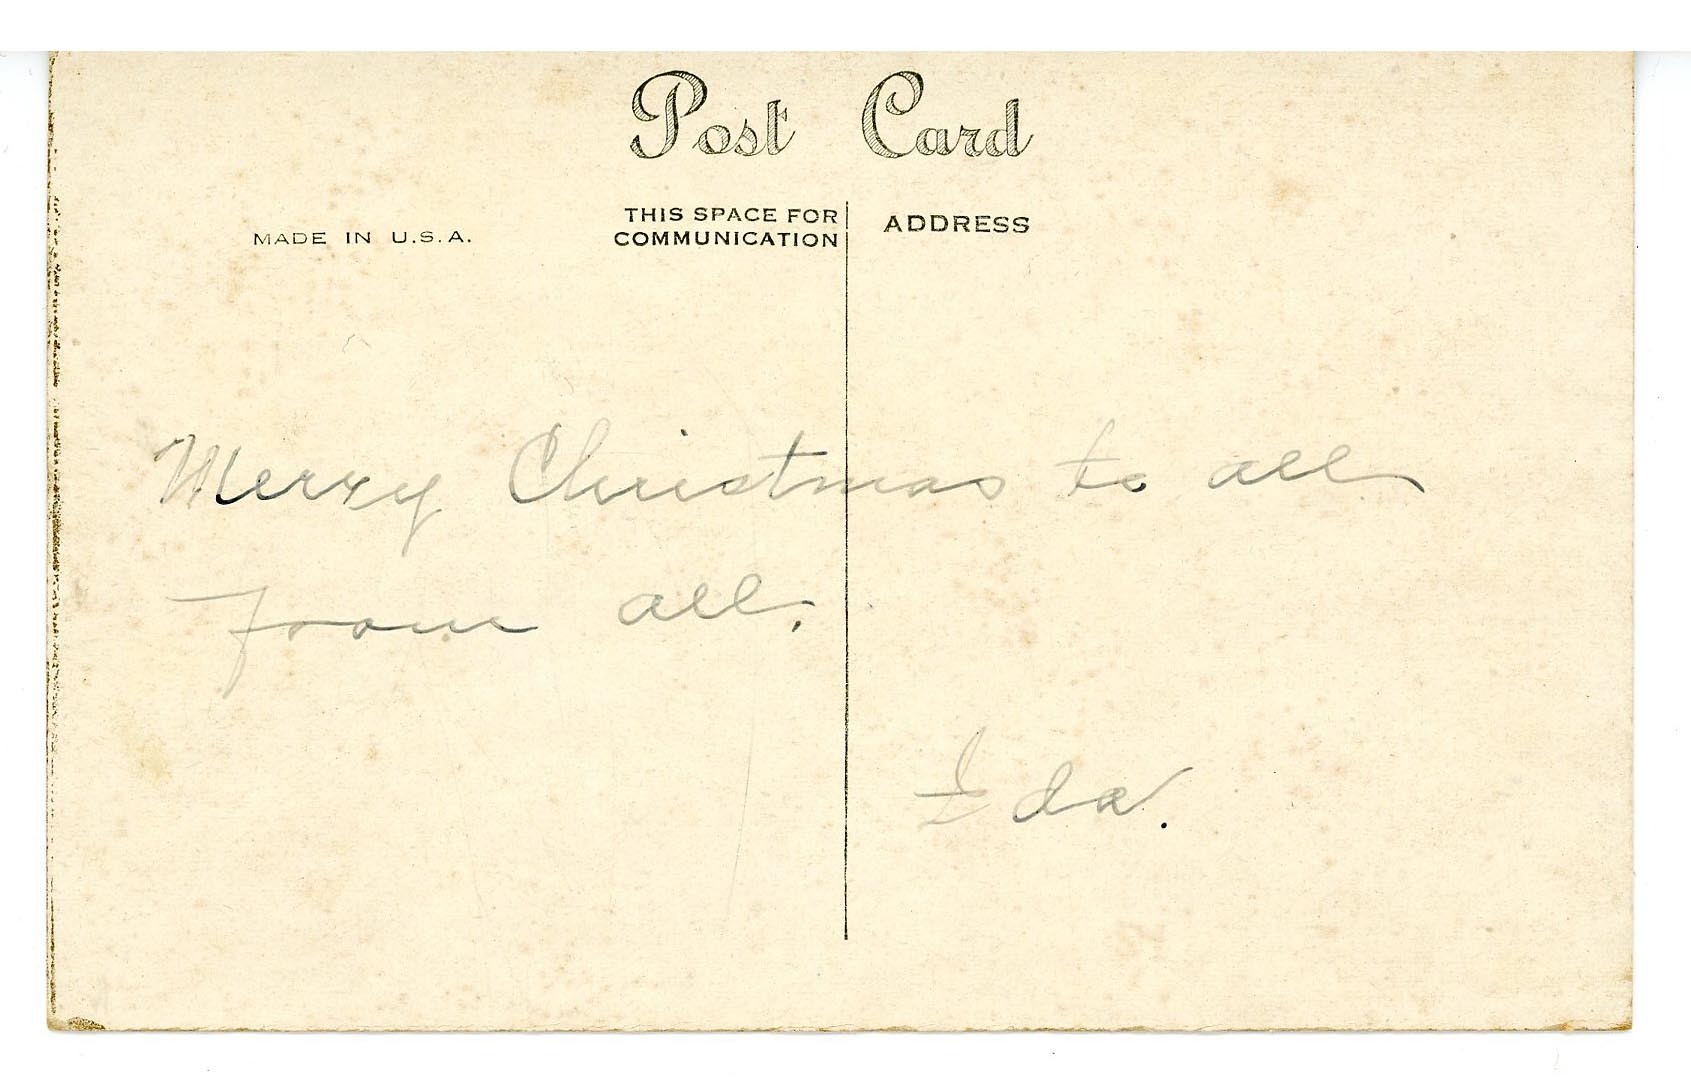 Post Card
MADE IN U.S.A.
THIS SPACE FOR
COMMUNICATION
ADDRESS
Merry Christmas to all
from all.
Ida.